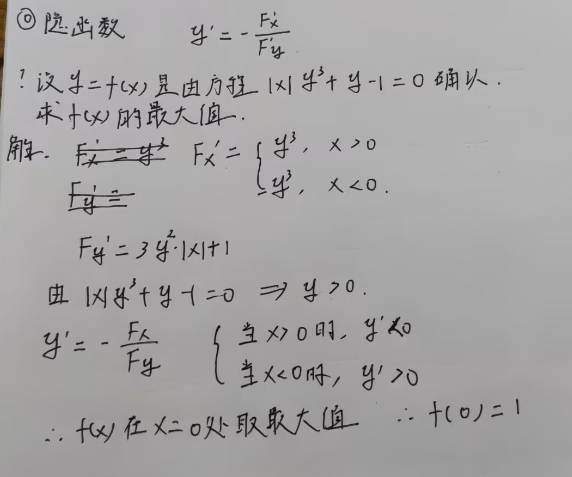 ◎ 隐函数 y' = - F'x / F'y
? 设 y=f(x) 是由方程 |x| y³ + y - 1 = 0 确认.
求 f(x) 的最大值.
解. F'x = y³ F'x = { y³, x>0
F'y = -y³, x<0.
F'y = 3y²·|x|+1
由 |x|y³+y-1=0 ⇒ y>0.
y' = - Fx / Fy { 当 x>0 时, y'<0
当 x<0 时, y'>0
∴ f(x) 在 x=0 处取最大值 ∴ f(0)=1